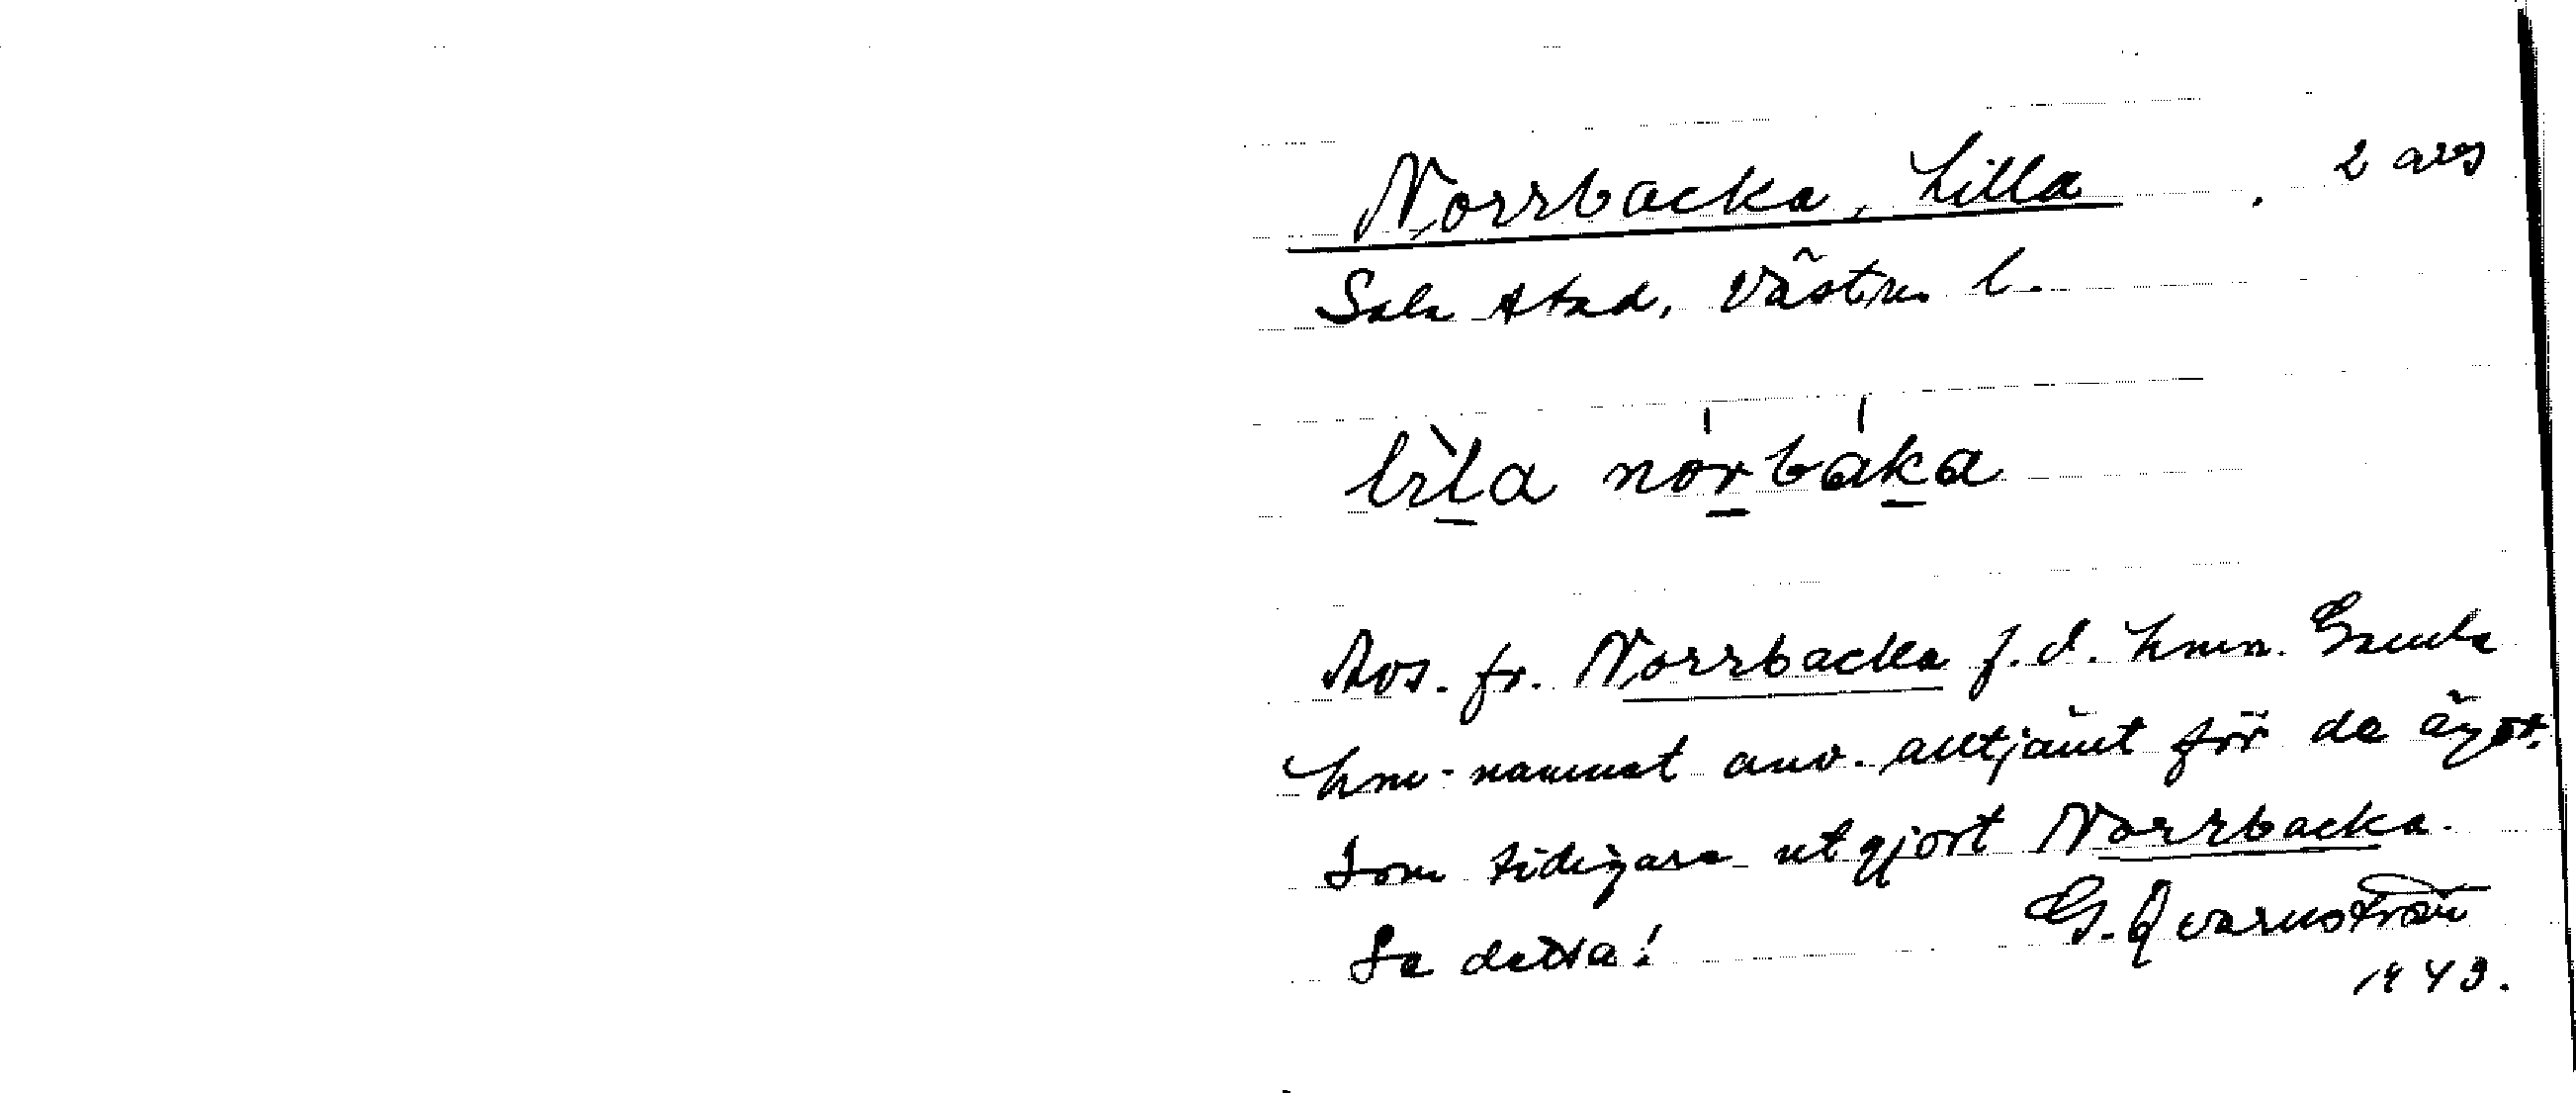 Norrbacka, Lilla . 2 ars
Sala stad, Västm. l.
lìla nórbáka
Avs. fr. Norrbacka f.d. hmn. Gamla
hm-namnet anv. alltjämt för de ägor
som tidigare utgjort Norrbacka.
Se detta! G. Qvarnström
1943.